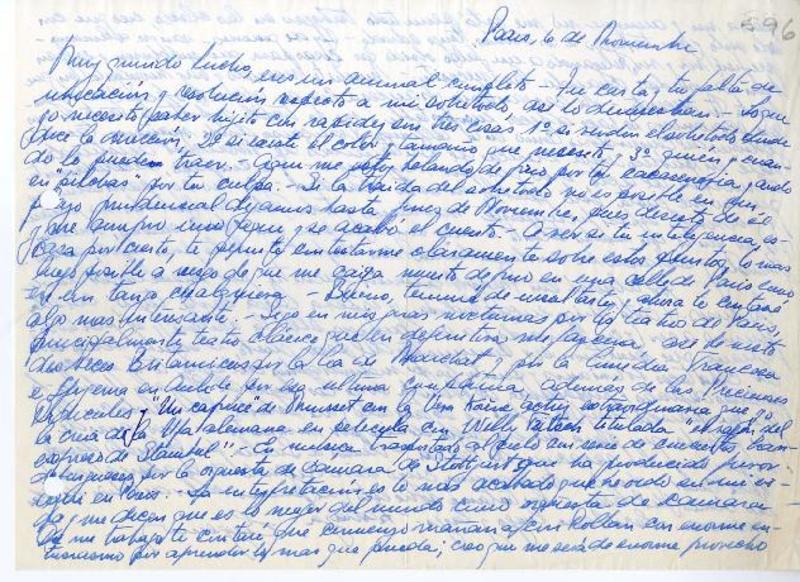 596
Paris, 6 de Noviembre
Muy querido Lucho, eres un animal completo - Tu carta y tu falta de
ubicación y resolución respecto a mi sobretodo, así lo demuestran. - Lo que
yo necesito saber hijito con rapidez son tres cosas 1º si venden el sobretodo donde
dice la dirección, 2º si existe el color y tamaño que necesito y 3º quién y cuan-
do lo pueden traer. - Aquí me estoy helando de frío por tu y ando
en "pilobas" por tu culpa. - Si la traída del sobretodo no es posible en un
plazo prudencial dejamos hasta fines de Noviembre, pues desisto de él
y me compro uno aquí y se acabó el cuento. - A ver si tu inteligencia, es-
casa por cierto, te permite contestarme claramente sobre estos puntos, lo más
luego posible a riesgo de que me caiga muerto de frío en una calle de Paris como
en un tango cualquiera - Bueno, termino de y ahora te contaré
algo más interesante. - Sigo en mis giras nocturnas por los teatros de Paris,
principalmente teatro clásico que en definitiva me fascina, así he visto
dos veces Britanicus por la Cía de Marchat y por la Comédie Francesa
e Ifigenia en Aulide por esa última compañía, además de las Preciosas
Ridículas y "Un caprice" de Musset con la actriz extraordinaria que yo
la creía de la Ufa alemana en película con Willy titulada "el
expreso de Stambul". - En música transportado al cielo con serie de conciertos
por la orquesta de cámara de Stuttgart que ha producido
en Paris. - La interpretación es lo más acabado que he oído en mi vi-
da y me dicen que es lo mejor del mundo como orquesta de cámara -
De mi trabajo te contaré que comienzo mañana con Rollan con enorme en-
tusiasmo por aprender lo más que pueda; creo que me será de enorme provecho